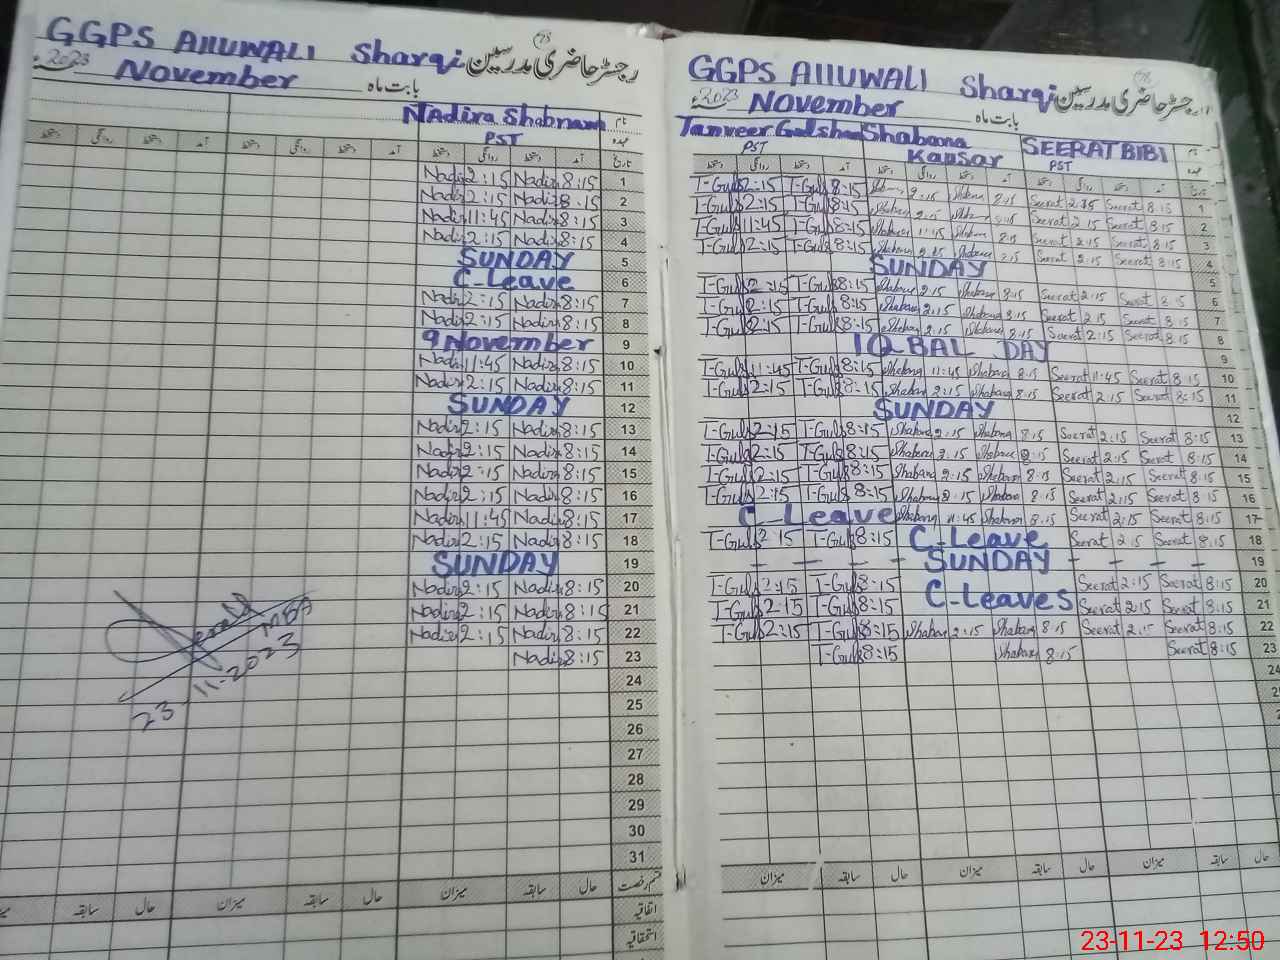 GGPS Alluwali Sharqi رجسٹر حاضری مدرسین
2023ء November بابت ماہ
Nadira Shabnam نام
PST عہدہ
دستخط روانگی دستخط آمد دستخط روانگی دستخط آمد دستخط روانگی دستخط آمد تاریخ
Nadir 2:15 Nadir 8:15 1
Nadir 2:15 Nadir 8:15 2
Nadir 11:45 Nadir 8:15 3
Nadir 2:15 Nadir 8:15 4
SUNDAY 5
C-Leave 6
Nadir 2:15 Nadir 8:15 7
Nadir 2:15 Nadir 8:15 8
9 November 9
Nadir 11:45 Nadir 8:15 10
Nadir 2:15 Nadir 8:15 11
SUNDAY 12
Nadir 2:15 Nadir 8:15 13
Nadir 2:15 Nadir 8:15 14
Nadir 2:15 Nadir 8:15 15
Nadir 2:15 Nadir 8:15 16
Nadir 11:45 Nadir 8:15 17
Nadir 2:15 Nadir 8:15 18
SUNDAY 19
Nadir 2:15 Nadir 8:15 20
Nadir 2:15 Nadir 8:15 21
Nadir 2:15 Nadir 8:15 22
Nadir 8:15 23
24
25
26
27
28
29
30
31
23-11-2023
میزان سابقہ حال میزان سابقہ حال میزان سابقہ حال قسم رخصت
اتفاقیہ
استحقاقیہ
GGPS Alluwali Sharqi رجسٹر حاضری مدرسین
2023ء November بابت ماہ
Tanveer Gulshan Shabana Kausar SEERAT BIBI نام
PST PST
دستخط روانگی دستخط آمد دستخط روانگی دستخط آمد دستخط روانگی دستخط آمد تاریخ
T-Guls 2:15 T-Guls 8:15 Shabana 2:15 Shabana 8:15 Seerat 2:15 Seerat 8:15 1
T-Guls 2:15 T-Guls 8:15 Shabana 2:15 Shabana 8:15 Seerat 2:15 Seerat 8:15 2
T-Guls 11:45 T-Guls 8:15 Shabana 11:45 Shabana 8:15 Seerat 2:15 Seerat 8:15 3
T-Guls 2:15 T-Guls 8:15 Shabana 2:15 Shabana 8:15 Seerat 2:15 Seerat 8:15 4
SUNDAY 5
T-Guls 2:15 T-Guls 8:15 Shabana 2:15 Shabana 8:15 Seerat 2:15 Seerat 8:15 6
T-Guls 2:15 T-Guls 8:15 Shabana 2:15 Shabana 8:15 Seerat 2:15 Seerat 8:15 7
T-Guls 2:15 T-Guls 8:15 Shabana 2:15 Shabana 8:15 Seerat 2:15 Seerat 8:15 8
IQBAL DAY 9
T-Guls 11:45 T-Guls 8:15 Shabana 11:45 Shabana 8:15 Seerat 11:45 Seerat 8:15 10
T-Guls 2:15 T-Guls 8:15 Shabana 2:15 Shabana 8:15 Seerat 2:15 Seerat 8:15 11
SUNDAY 12
T-Guls 2:15 T-Guls 8:15 Shabana 2:15 Shabana 8:15 Seerat 2:15 Seerat 8:15 13
T-Guls 2:15 T-Guls 8:15 Shabana 2:15 Shabana 8:15 Seerat 2:15 Seerat 8:15 14
T-Guls 2:15 T-Guls 8:15 Shabana 2:15 Shabana 8:15 Seerat 2:15 Seerat 8:15 15
T-Guls 2:15 T-Guls 8:15 Shabana 2:15 Shabana 8:15 Seerat 2:15 Seerat 8:15 16
C-Leave Shabana 11:45 Shabana 8:15 Seerat 2:15 Seerat 8:15 17
T-Guls 2:15 T-Guls 8:15 C-Leave Seerat 2:15 Seerat 8:15 18
- - - - SUNDAY - - - - 19
T-Guls 2:15 T-Guls 8:15 Seerat 2:15 Seerat 8:15 20
T-Guls 2:15 T-Guls 8:15 C-Leaves Seerat 2:15 Seerat 8:15 21
T-Guls 2:15 T-Guls 8:15 Shabana 2:15 Shabana 8:15 Seerat 2:15 Seerat 8:15 22
T-Guls 8:15 Shabana 8:15 Seerat 8:15 23
24
میزان سابقہ حال میزان سابقہ حال میزان سابقہ حال
23-11-23 12:50